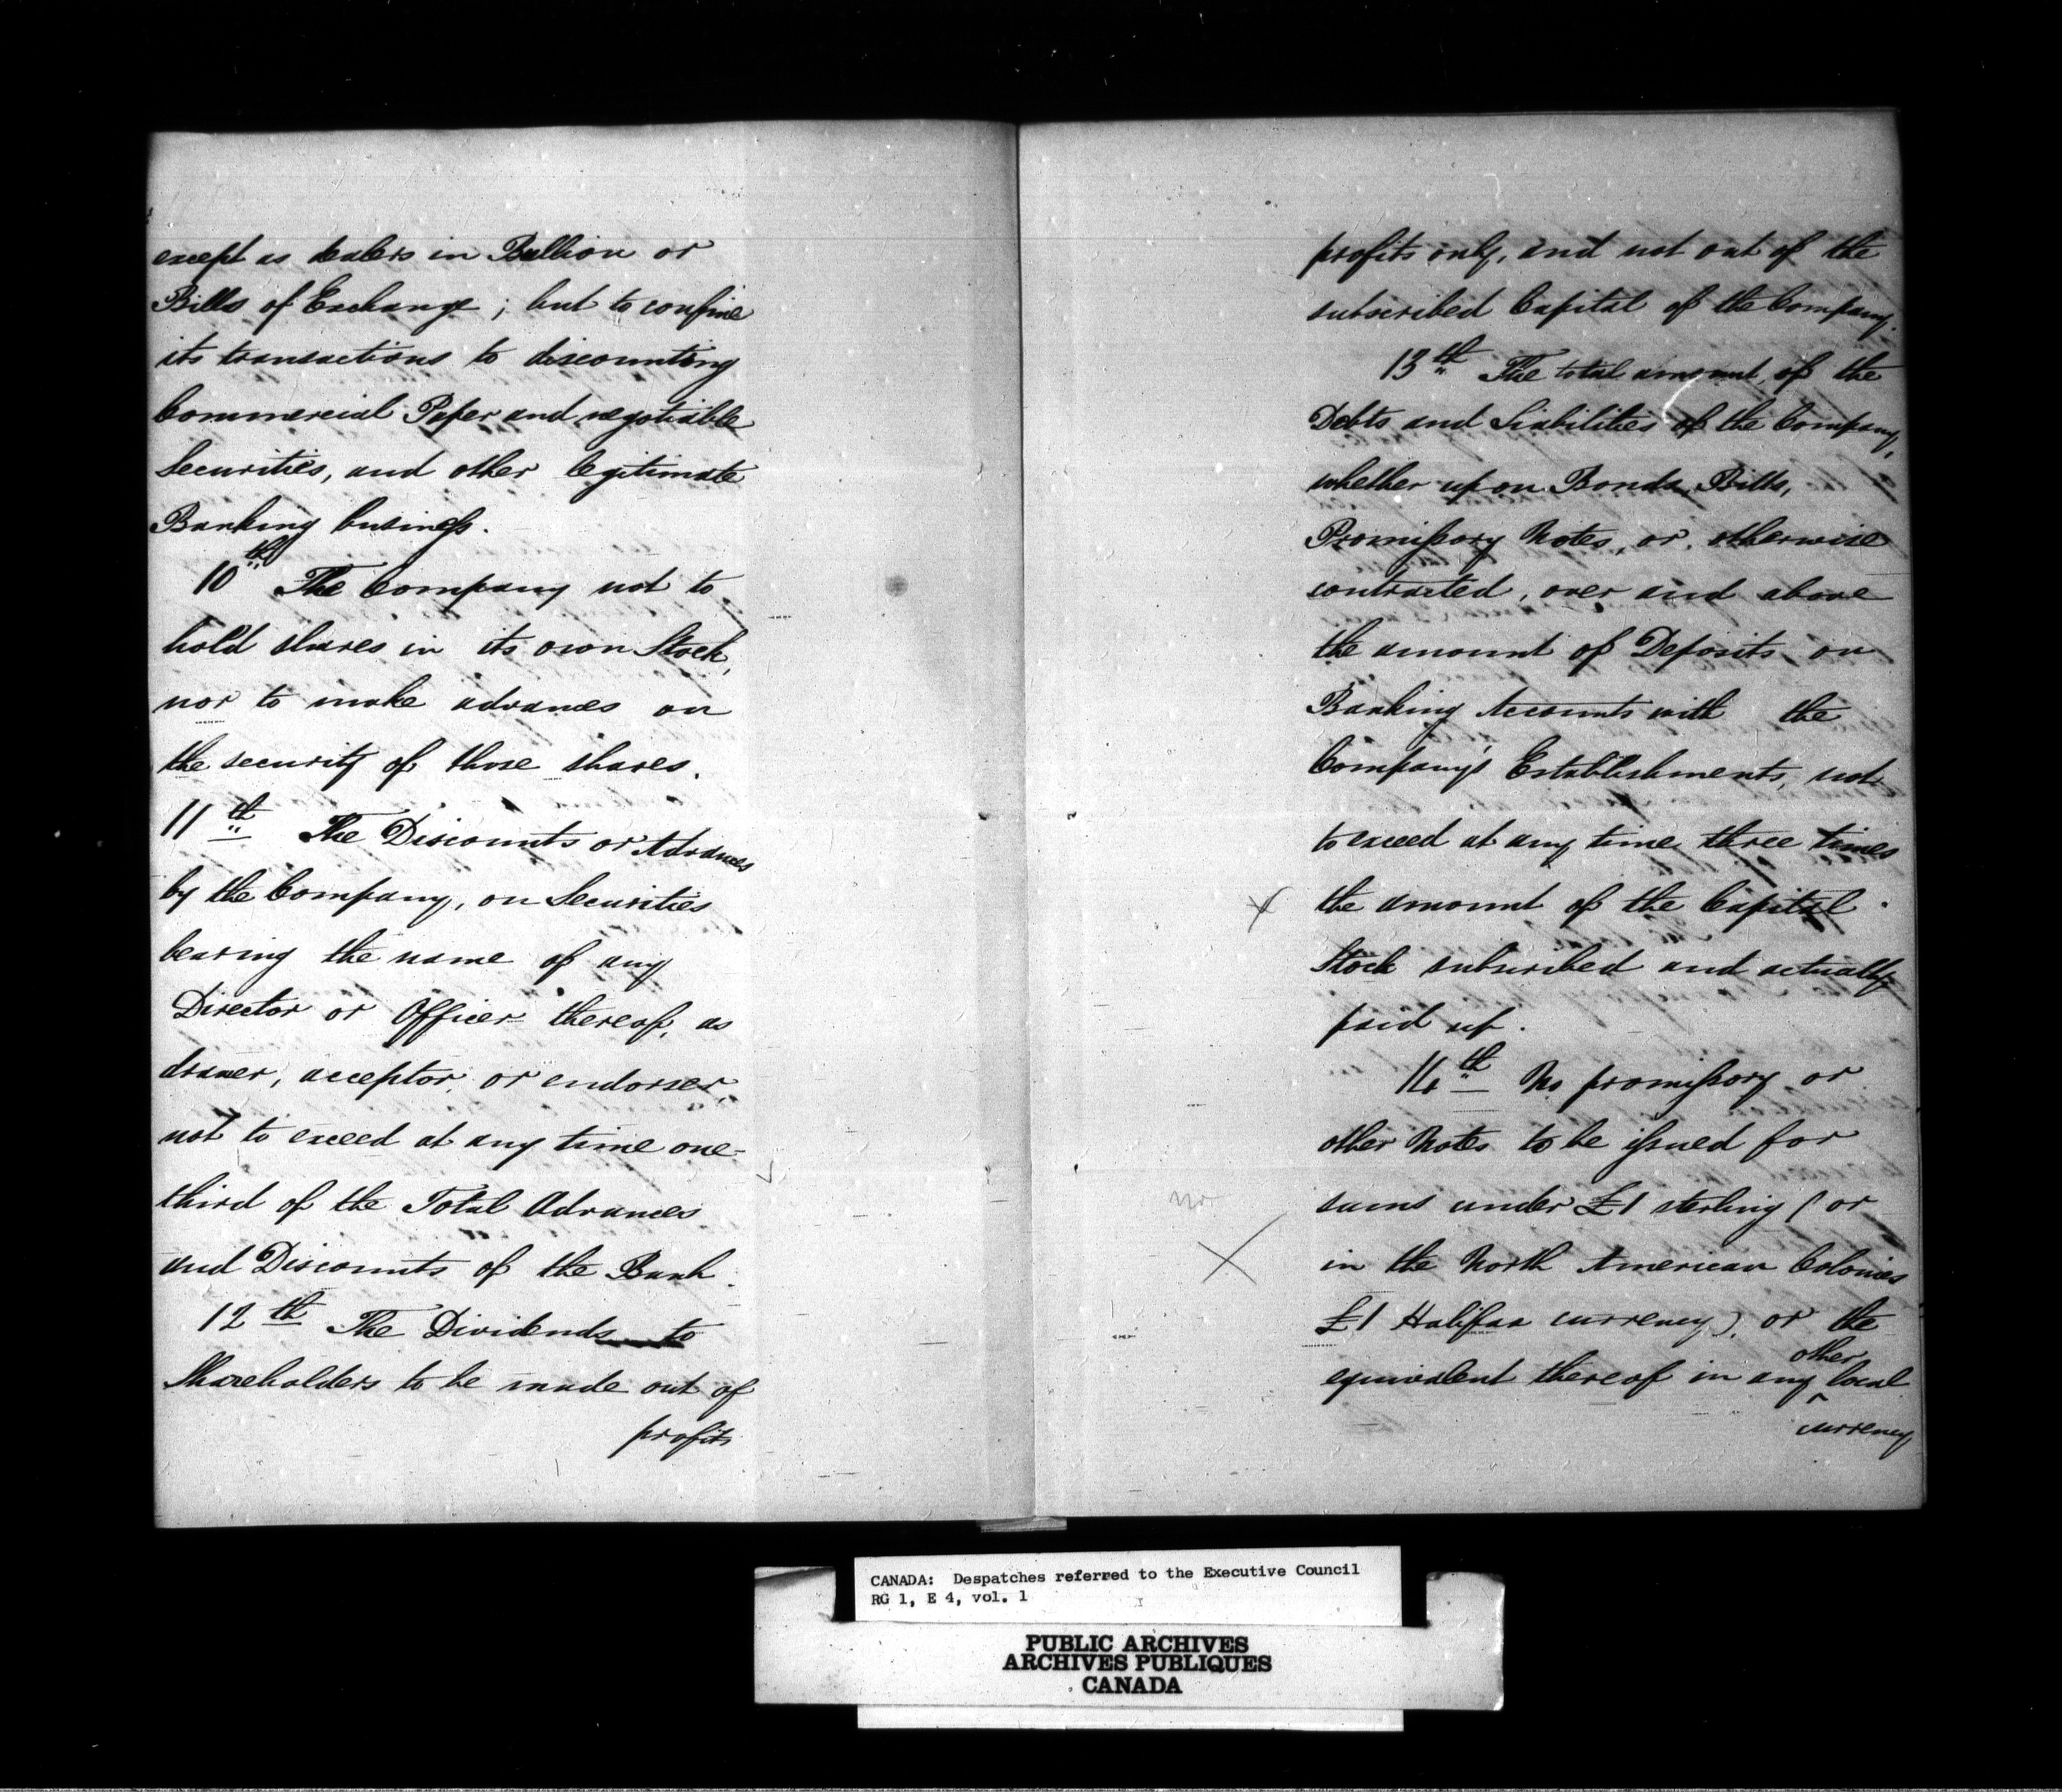 except as dealers in Bullion or
Bills of Exchange; but to confine
its transactions to discounting
Commercial Paper and negotiable
Securities, and other legitimate
Banking business.
10th The Company not to
hold shares in its own Stock,
nor to make advances on
the security of those shares.
11th The Discounts or Advances
by the Company, on Securities
bearing the name of any
Director or Officer thereof, as
drawer, acceptor, or endorser,
not to exceed at any time one-
third of the Total Advances
and Discounts of the Bank.
12th The Dividends to
Shareholders to be made out of
profits
profits only, and not out of the
subscribed Capital of the Company.
13th The total amount of the
Debts and Liabilities of the Company,
whether upon Bonds, Bills,
Promissory Notes, or otherwise
contracted, over and above
the amount of Deposits on
Banking Accounts with the
Company's Establishments, not
to exceed at any time three times
the amount of the Capital
Stock subscribed and actually
paid up.
14th No promissory or
other Notes to be issued for
no
sums under £1 sterling (or
in the North American Colonies
£1 Halifax currency), or the
equivalent thereof in any other local
currency
CANADA: Despatches referred to the Executive Council
RG 1, E 4, vol. 1
PUBLIC ARCHIVES
ARCHIVES PUBLIQUES
CANADA